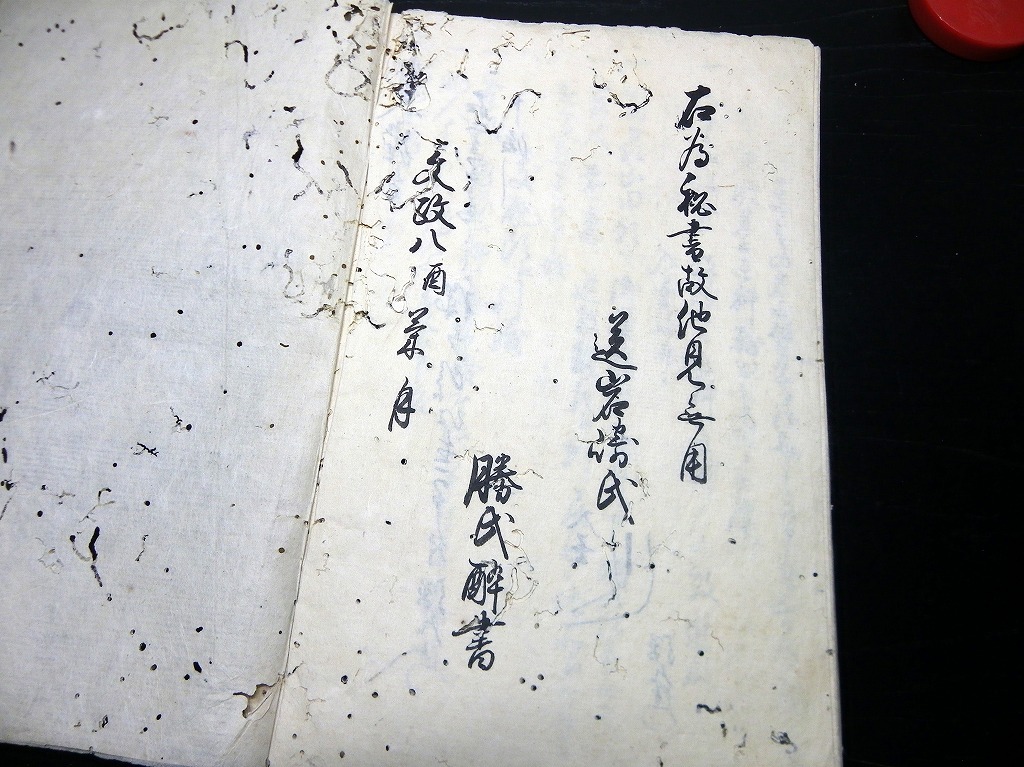 右為秘書故他見無用
送岩崎氏
勝氏酔書
文政八酉
菊月